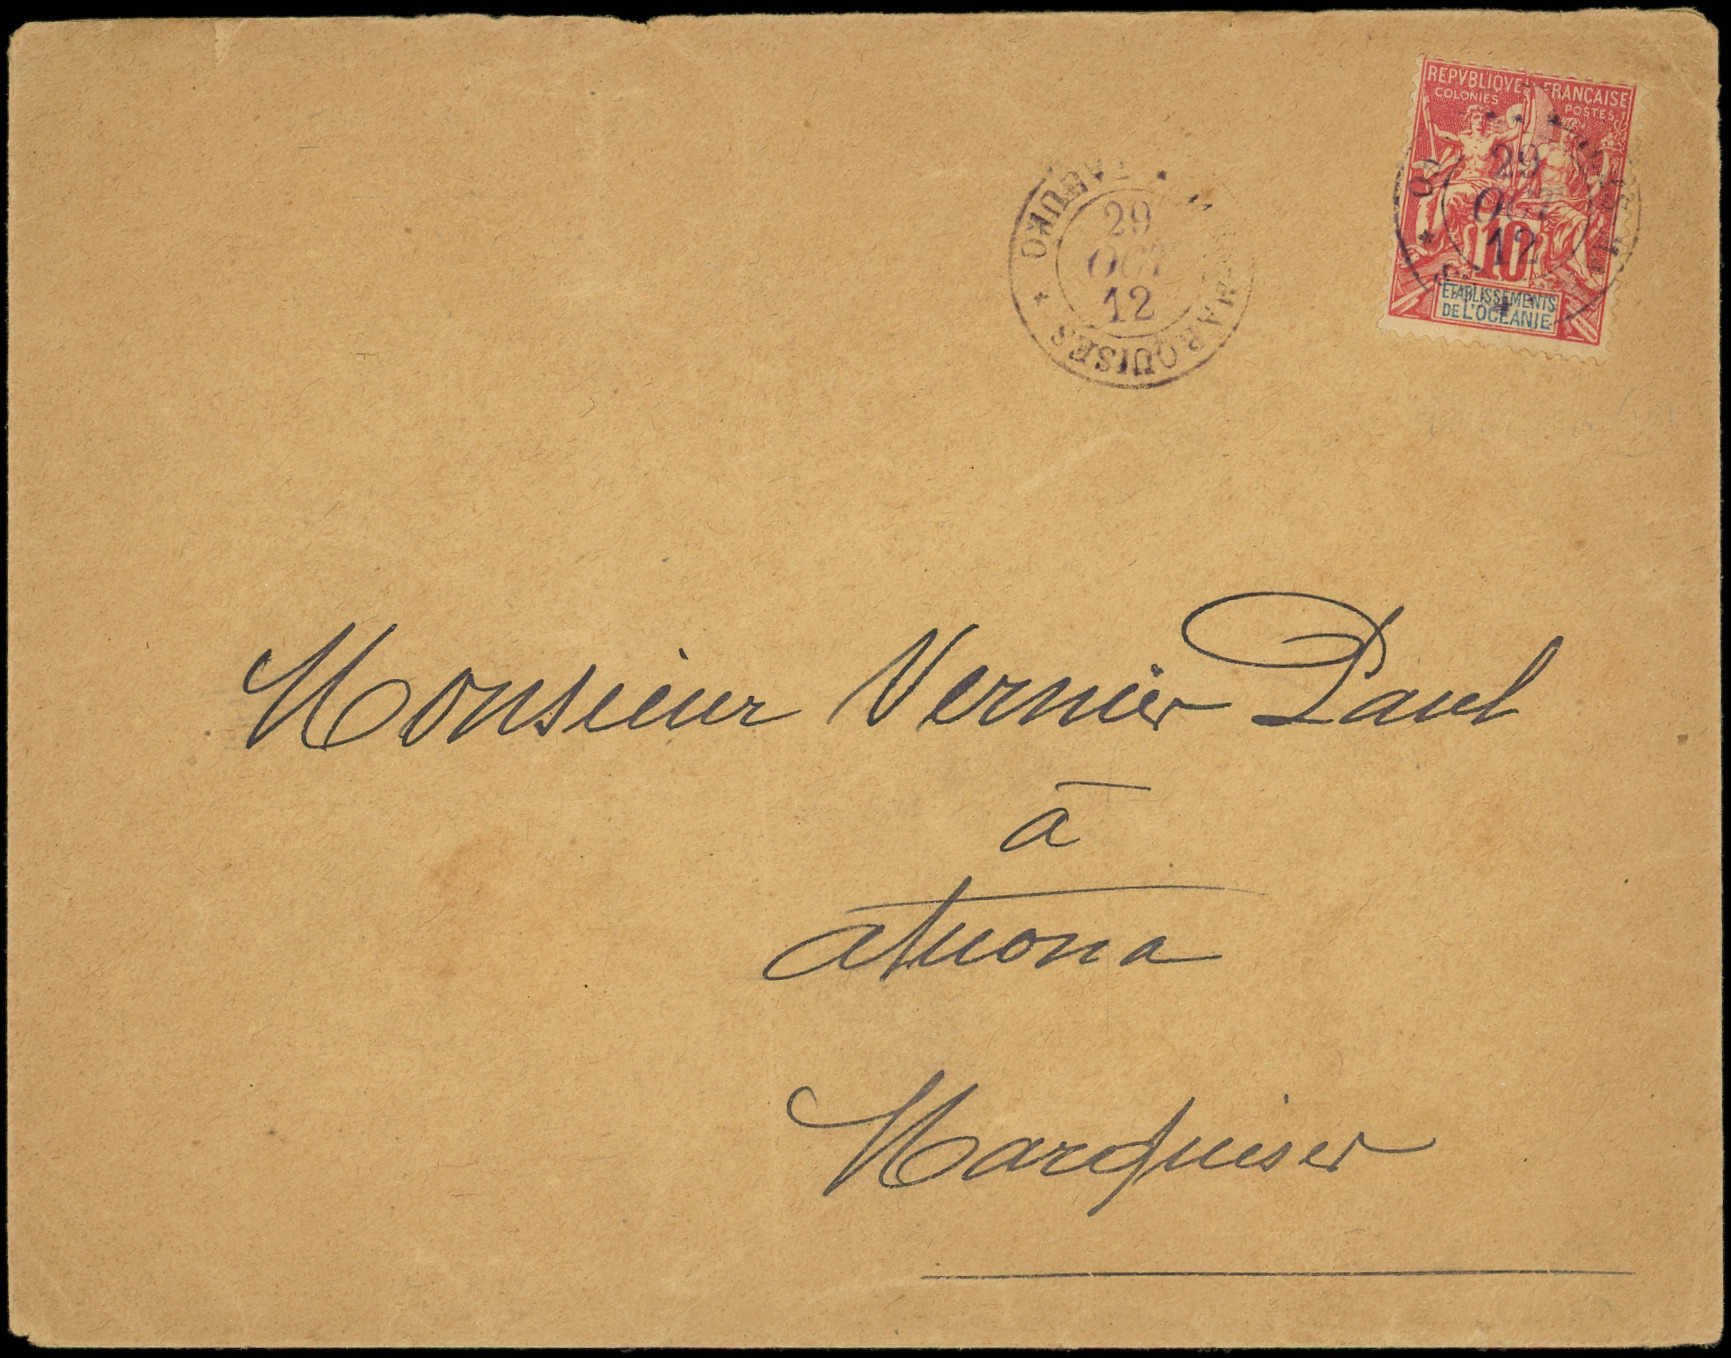 REPVBLIQUE FRANÇAISE
COLONIES POSTES
10
ETABLISSEMENTS
DE L'OCEANIE
29
OCT
12
29
OCT
12
MARQUISES
Monsieur Vernier Paul
à
Atuona
Marquises